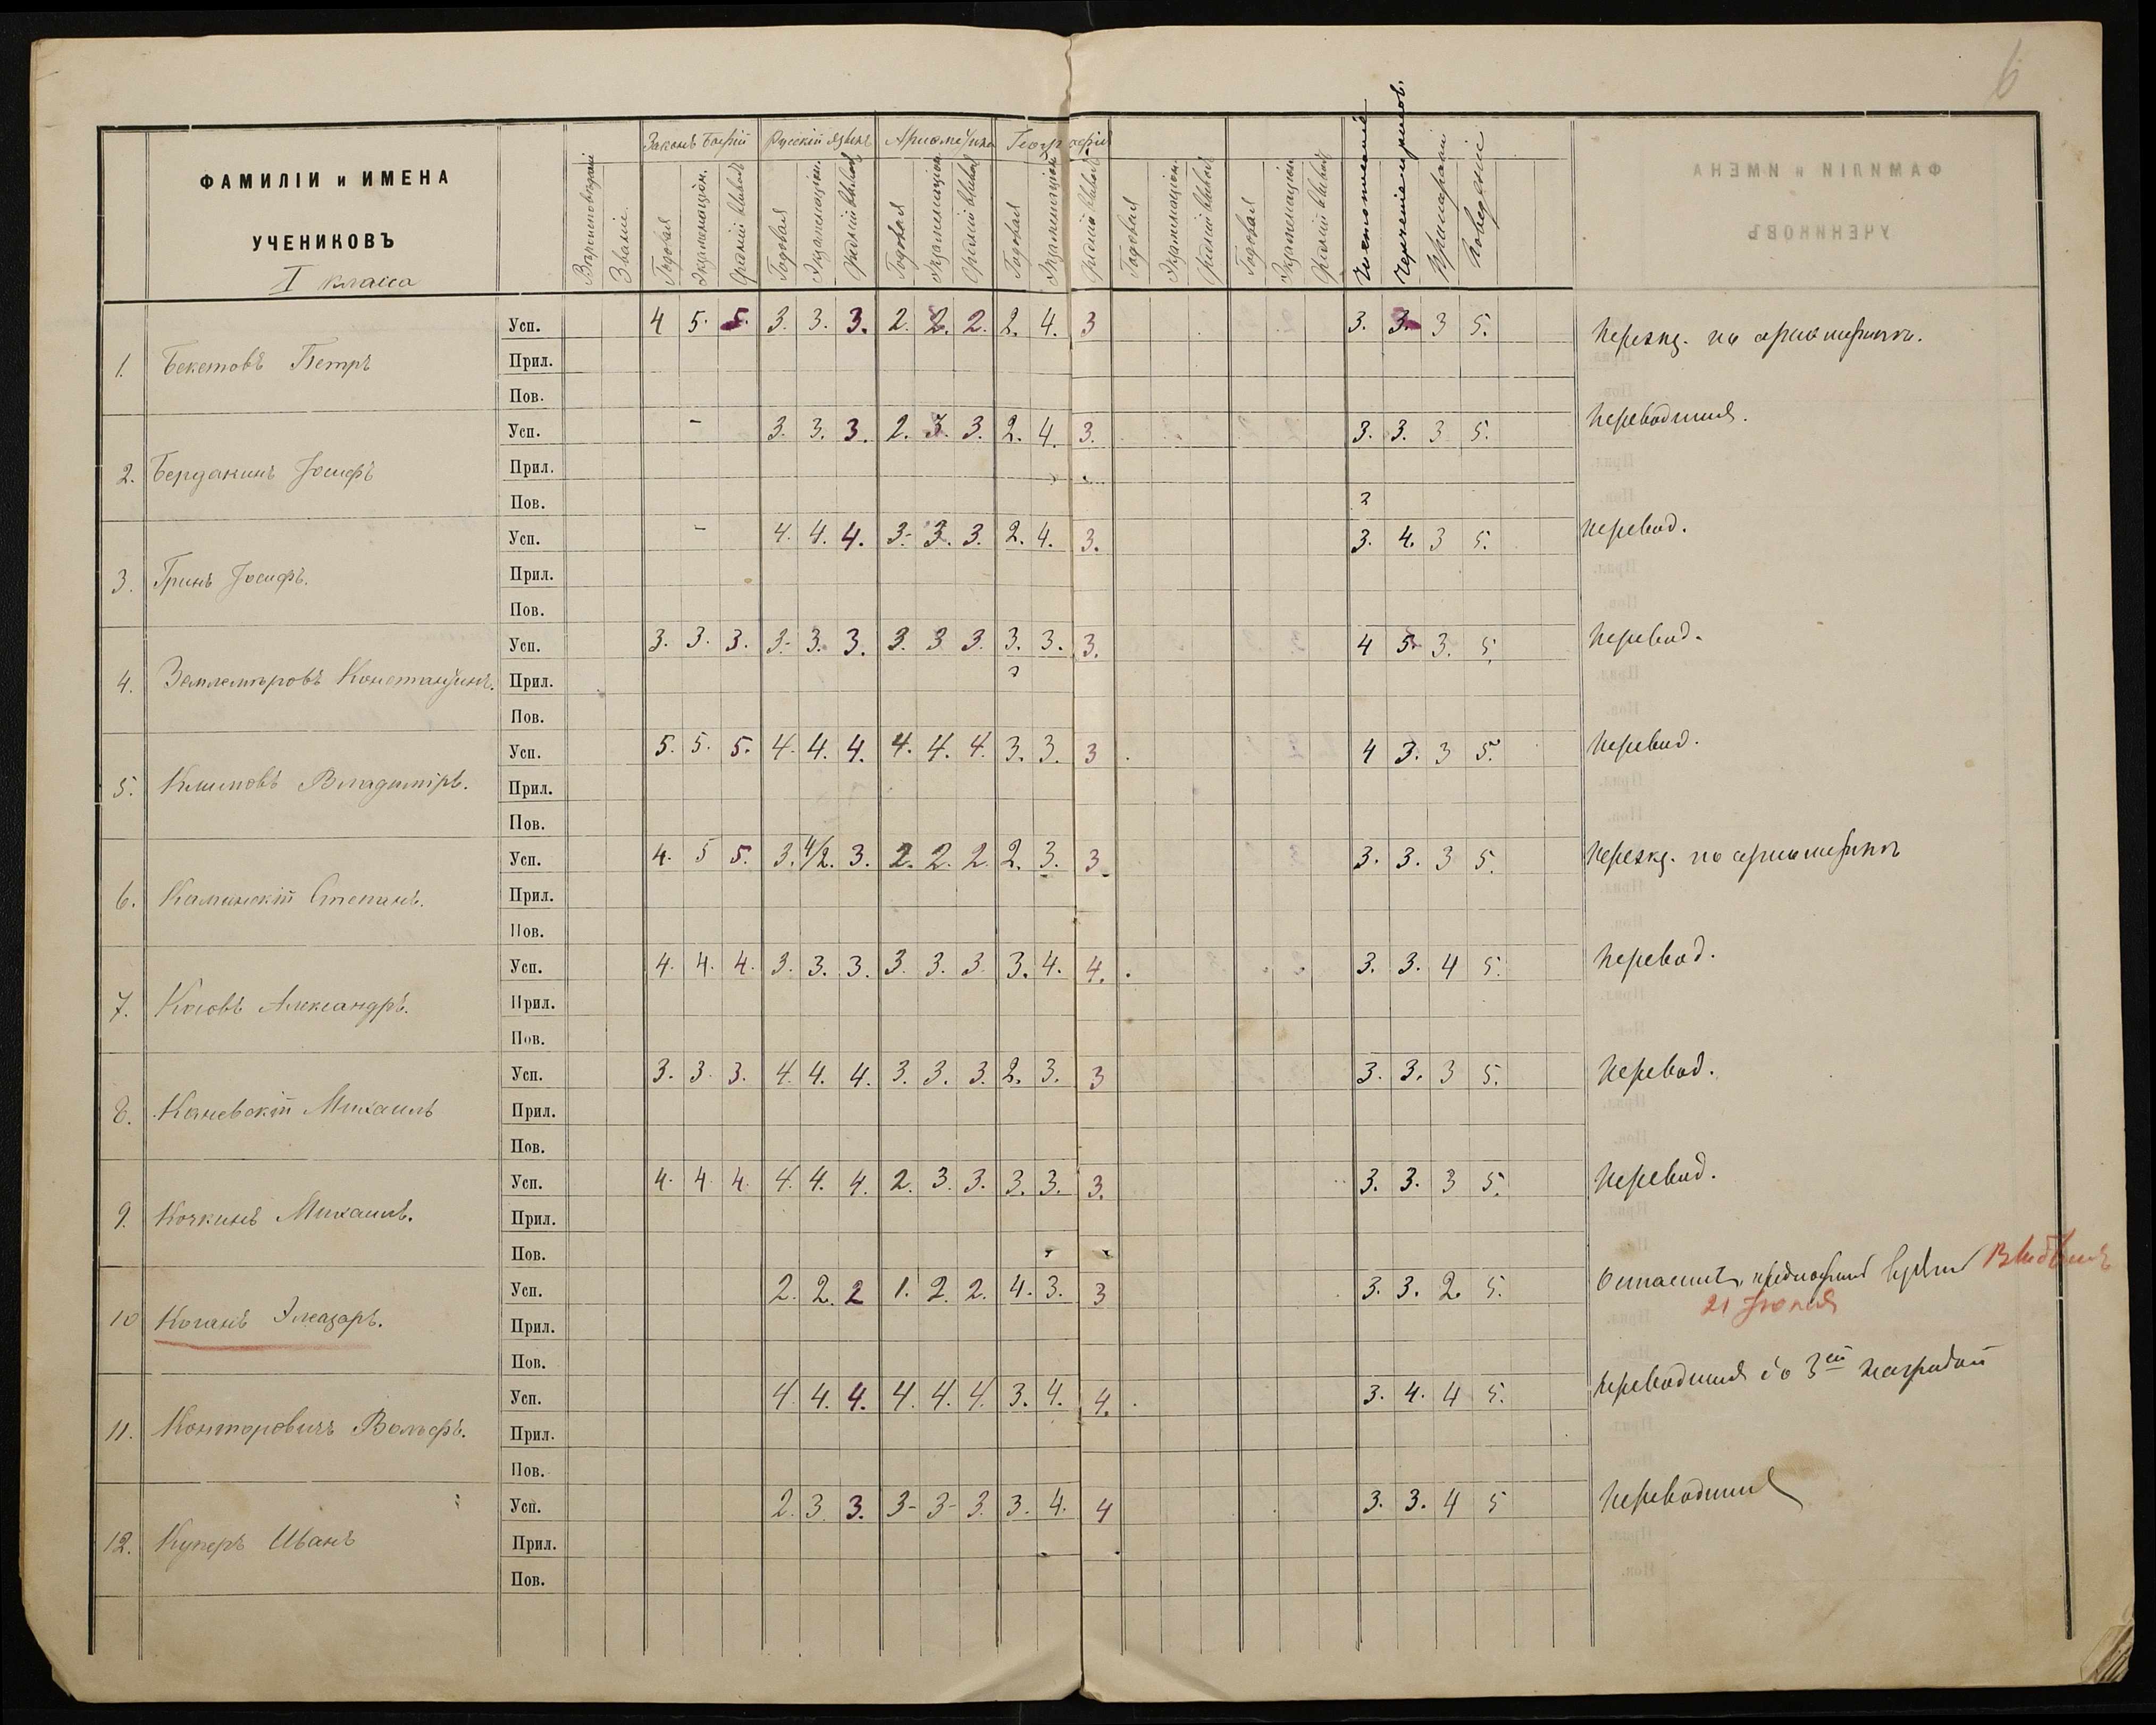 6
ФАМИЛІИ и ИМЕНА
УЧЕНИКОВЪ
I класса
Вѣроисповѣданіе
Званіе.
Законъ Божій
Русскій языкъ
Ариѳметика
Географія
Годовая Экзаменаціон. Средній выводъ
Годовая Экзаменаціон. Средній выводъ
Годовая Экзаменаціон. Средній выводъ
Годовая Экзаменаціон. Средній выводъ
Годовая Экзаменаціон. Средній выводъ
Годовая Экзаменаціон. Средній выводъ
Чистописаніе
Прилежаніе
Поведеніе
1. Бекетовъ Петръ
Усп. 4 5. 5. 3. 3. 3. 2. 2. 2. 2. 4. 3 3. 3. 3 5. Переэкз. по ариѳметикѣ.
Прил.
Пов.
2. Іосифъ
Усп. - 3. 3. 3. 2. 3. 3. 2. 4. 3. 3. 3. 3 5. Переводится.
Прил.
Пов. 3
3. Гринъ Іосифъ.
Усп. - 4. 4. 4. 3. 3. 3. 2. 4. 3. 3. 4. 3 5. Перевод.
Прил.
Пов.
4. Землемѣровъ Константинъ.
Усп. 3. 3. 3. 3. 3. 3. 3. 3 3. 3. 3. 3. 4 5 3. 5. Перевод.
Прил. 3
Пов.
5. Климовъ Владиміръ.
Усп. 5. 5. 5. 4. 4. 4. 4. 4. 4. 3. 3. 3 4 3. 3 5. Перевод.
Прил.
Пов.
6. Каминскій Степанъ.
Усп. 4. 5 5. 3. 4/2. 3. 2. 2. 2. 2. 3. 3 3. 3. 3 5. Переэкз. по ариѳметикѣ
Прил.
Пов.
7. Александръ.
Усп. 4. 4. 4. 3. 3. 3. 3. 3. 3. 3. 4. 4. 3. 3. 4 5. Перевод.
Прил.
Пов.
8. Каневскій Михаилъ
Усп. 3. 3. 3. 4. 4. 4. 3. 3. 3. 2. 3. 3 3. 3. 3 5. Перевод.
Прил.
Пов.
9. Кочкинъ Михаилъ.
Усп. 4. 4 4. 4. 4. 4. 2. 3. 3. 3. 3. 3. 3. 3. 3 5. Перевод.
Прил.
Пов.
10 Коганъ Элеазаръ.
Усп. 2. 2. 2 1. 2. 2. 4. 3. 3 3. 3. 2. 5. Выбылъ
21 Іюля
Прил.
Пов.
11. Канторовичъ Вольфъ.
Усп. 4 4. 4. 4. 4. 4. 3. 4. 4. 3. 4. 4 5. Переводится со 3ей наградой
Прил.
Пов.
12. Куперъ Иванъ
Усп. 2. 3. 3. 3- 3- 3. 3. 4. 4 3. 3. 4 5 Переводится
Прил.
Пов.